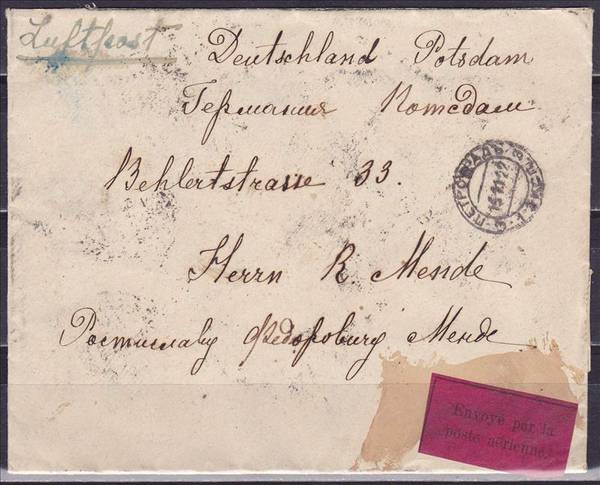 Luftpost
Deutschland Potsdam
Германия Потсдам
Behlertstrasse 33.
ПЕТРОГРАДЪ
Herrn R. Mende
Ростиславу Федоровичу Менде
Envoyé par la
poste aérienne.